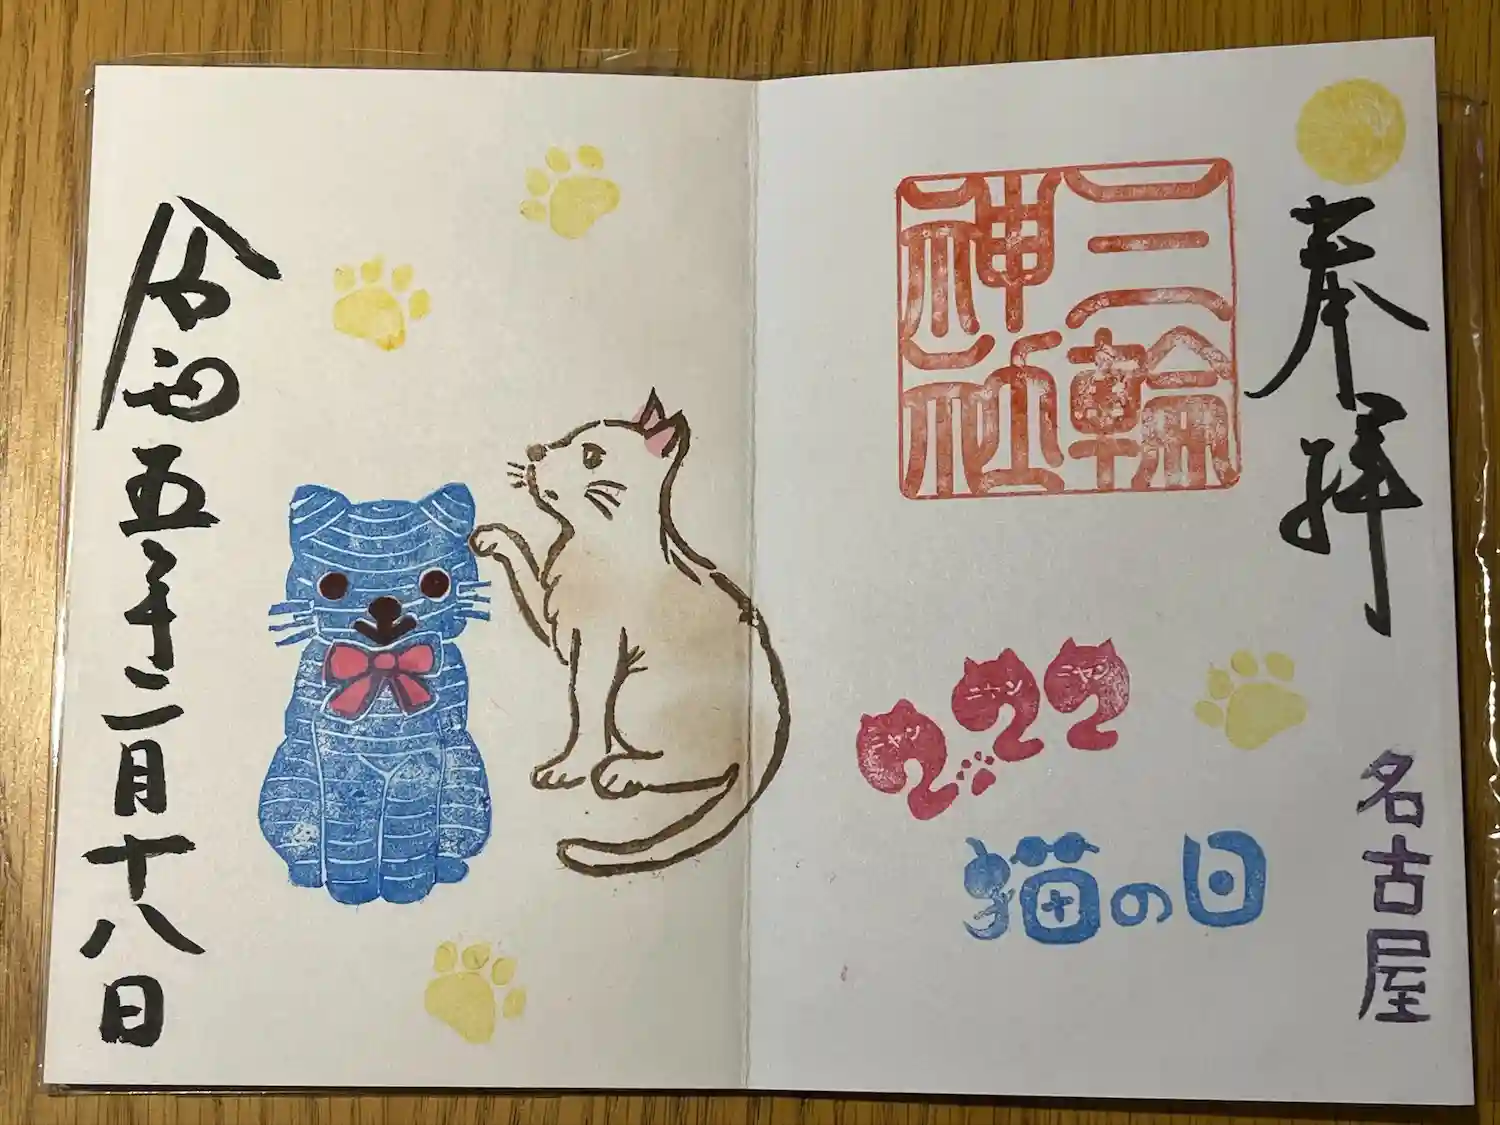 奉拝
三輪
神社
名古屋
ニャン
ニャン
ニャン
猫の日
令和五年二月十八日